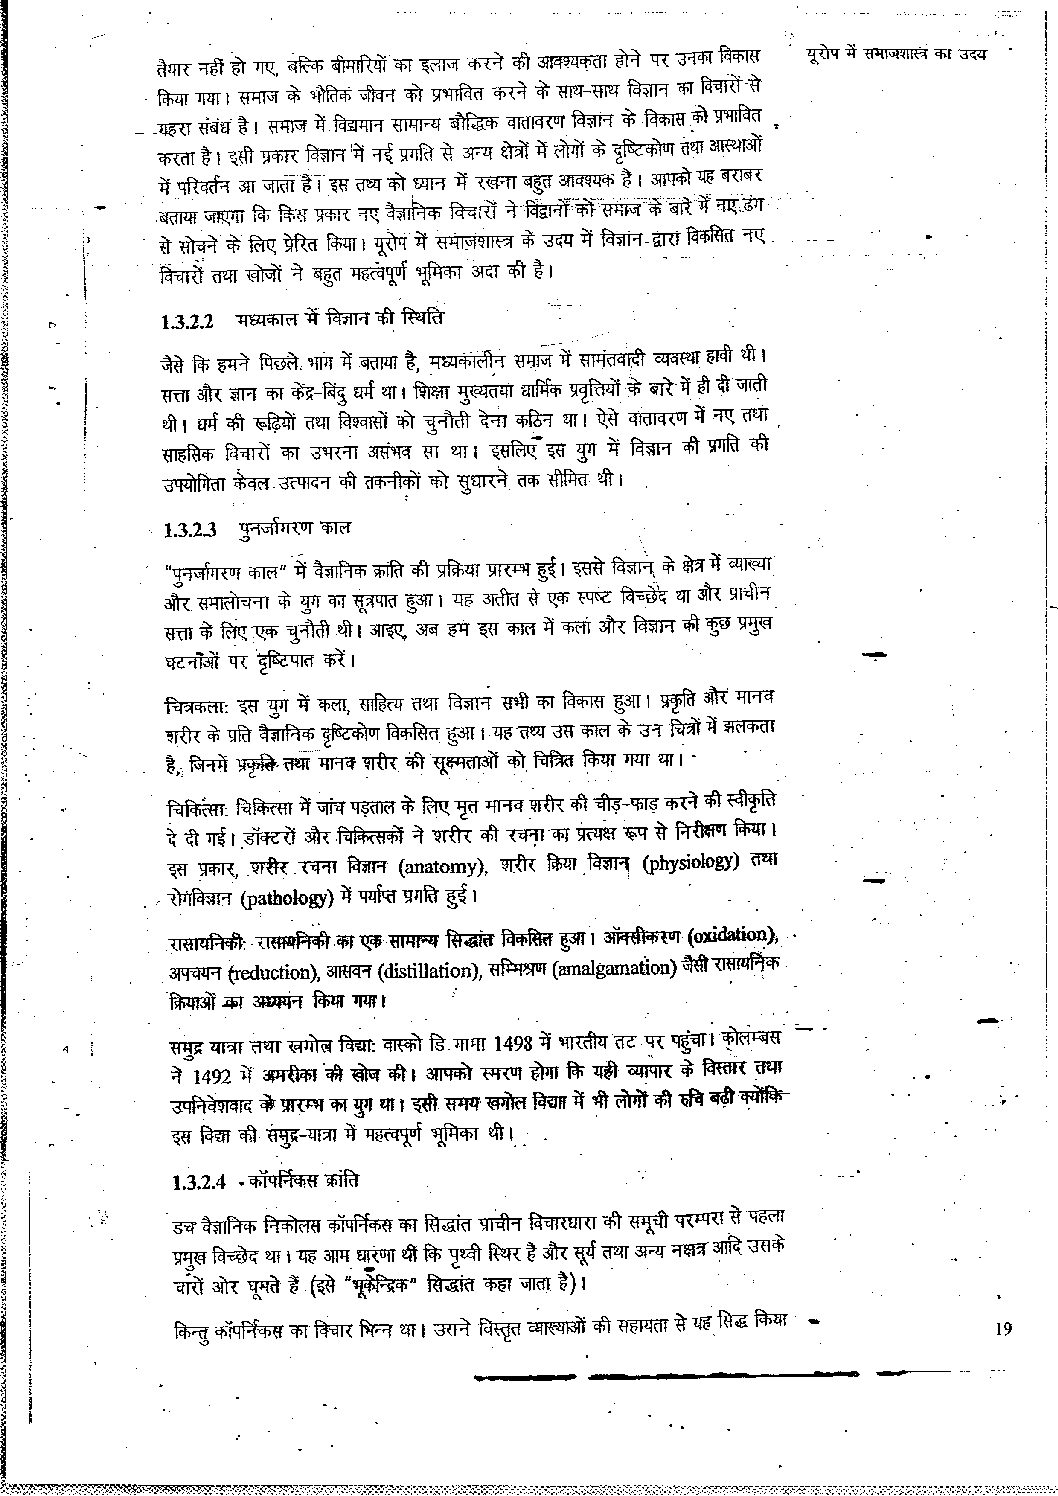 यूरोप में समाजशास्त्र का उदय
तैयार नहीं हो गए, बल्कि बीमारियों का इलाज करने की आवश्यकता होने पर उनका विकास
किया गया। समाज के भौतिक जीवन को प्रभावित करने के साथ-साथ विज्ञान का विचारों से
गहरा संबंध है। समाज में विद्यमान सामान्य बौद्धिक वातावरण विज्ञान के विकास को प्रभावित
करता है। इसी प्रकार विज्ञान में नई प्रगति से अन्य क्षेत्रों में लोगों के दृष्टिकोण तथा आस्थाओं
में परिवर्तन आ जाता है। इस तथ्य को ध्यान में रखना बहुत आवश्यक है। आपको यह बराबर
बताया जाएगा कि किस प्रकार नए वैज्ञानिक विचारों ने विद्वानों को समाज के बारे में नए ढंग
से सोचने के लिए प्रेरित किया। यूरोप में समाजशास्त्र के उदय में विज्ञान द्वारा विकसित नए
विचारों तथा खोजों ने बहुत महत्वपूर्ण भूमिका अदा की है।
1.3.2.2 मध्यकाल में विज्ञान की स्थिति
जैसे कि हमने पिछले भाग में बताया है, मध्यकालीन समाज में सामंतवादी व्यवस्था हावी थी।
सत्ता और ज्ञान का केंद्र-बिंदु धर्म था। शिक्षा मुख्यतया धार्मिक प्रवृत्तियों के बारे में ही दी जाती
थी। धर्म की रूढ़ियों तथा विश्वासों को चुनौती देना कठिन था। ऐसे वातावरण में नए तथा
साहसिक विचारों का उभरना असंभव सा था। इसलिए इस युग में विज्ञान की प्रगति की
उपयोगिता केवल उत्पादन की तकनीकों को सुधारने तक सीमित थी।
1.3.2.3 पुनर्जागरण काल
"पुनर्जागरण काल" में वैज्ञानिक क्रांति की प्रक्रिया प्रारम्भ हुई। इससे विज्ञान के क्षेत्र में व्याख्या
और समालोचना के युग का सूत्रपात हुआ। यह अतीत से एक स्पष्ट विच्छेद था और प्राचीन
सत्ता के लिए एक चुनौती थी। आइए, अब हम इस काल में कला और विज्ञान की कुछ प्रमुख
घटनाओं पर दृष्टिपात करें।
चित्रकला: इस युग में कला, साहित्य तथा विज्ञान सभी का विकास हुआ। प्रकृति और मानव
शरीर के प्रति वैज्ञानिक दृष्टिकोण विकसित हुआ। यह तथ्य उस काल के उन चित्रों में झलकता
है, जिनमें प्रकृति तथा मानव शरीर की सूक्ष्मताओं को चित्रित किया गया था।
चिकित्सा: चिकित्सा में जांच पड़ताल के लिए मृत मानव शरीर की चीड़-फाड़ करने की स्वीकृति
दे दी गई। डॉक्टरों और चिकित्सकों ने शरीर की रचना का प्रत्यक्ष रूप से निरीक्षण किया।
इस प्रकार, शरीर रचना विज्ञान (anatomy), शरीर क्रिया विज्ञान (physiology) तथा
रोगविज्ञान (pathology) में पर्याप्त प्रगति हुई।
रासायनिकी: रासायनिकी का एक सामान्य सिद्धांत विकसित हुआ। ऑक्सीकरण (oxidation),
अपचयन (reduction), आसवन (distillation), सम्मिश्रण (amalgamation) जैसी रासायनिक
क्रियाओं का अध्ययन किया गया।
समुद्र यात्रा तथा खगोल विद्या: वास्को डि गामा 1498 में भारतीय तट पर पहुंचा। कोलम्बस
ने 1492 में अमरीका की खोज की। आपको स्मरण होगा कि यही व्यापार के विस्तार तथा
उपनिवेशवाद के प्रारम्भ का युग था। इसी समय खगोल विद्या में भी लोगों की रुचि बढ़ी क्योंकि
इस विद्या की समुद्र-यात्रा में महत्वपूर्ण भूमिका थी।
1.3.2.4 कॉपर्निकस क्रांति
डच वैज्ञानिक निकोलस कॉपर्निकस का सिद्धांत प्राचीन विचारधारा की समूची परम्परा से पहला
प्रमुख विच्छेद था। यह आम धारणा थी कि पृथ्वी स्थिर है और सूर्य तथा अन्य नक्षत्र आदि उसके
चारों ओर घूमते हैं (इसे "भूकेन्द्रिक" सिद्धांत कहा जाता है)।
किन्तु कॉपर्निकस का विचार भिन्न था। उसने विस्तृत व्याख्याओं की सहायता से यह सिद्ध किया
19